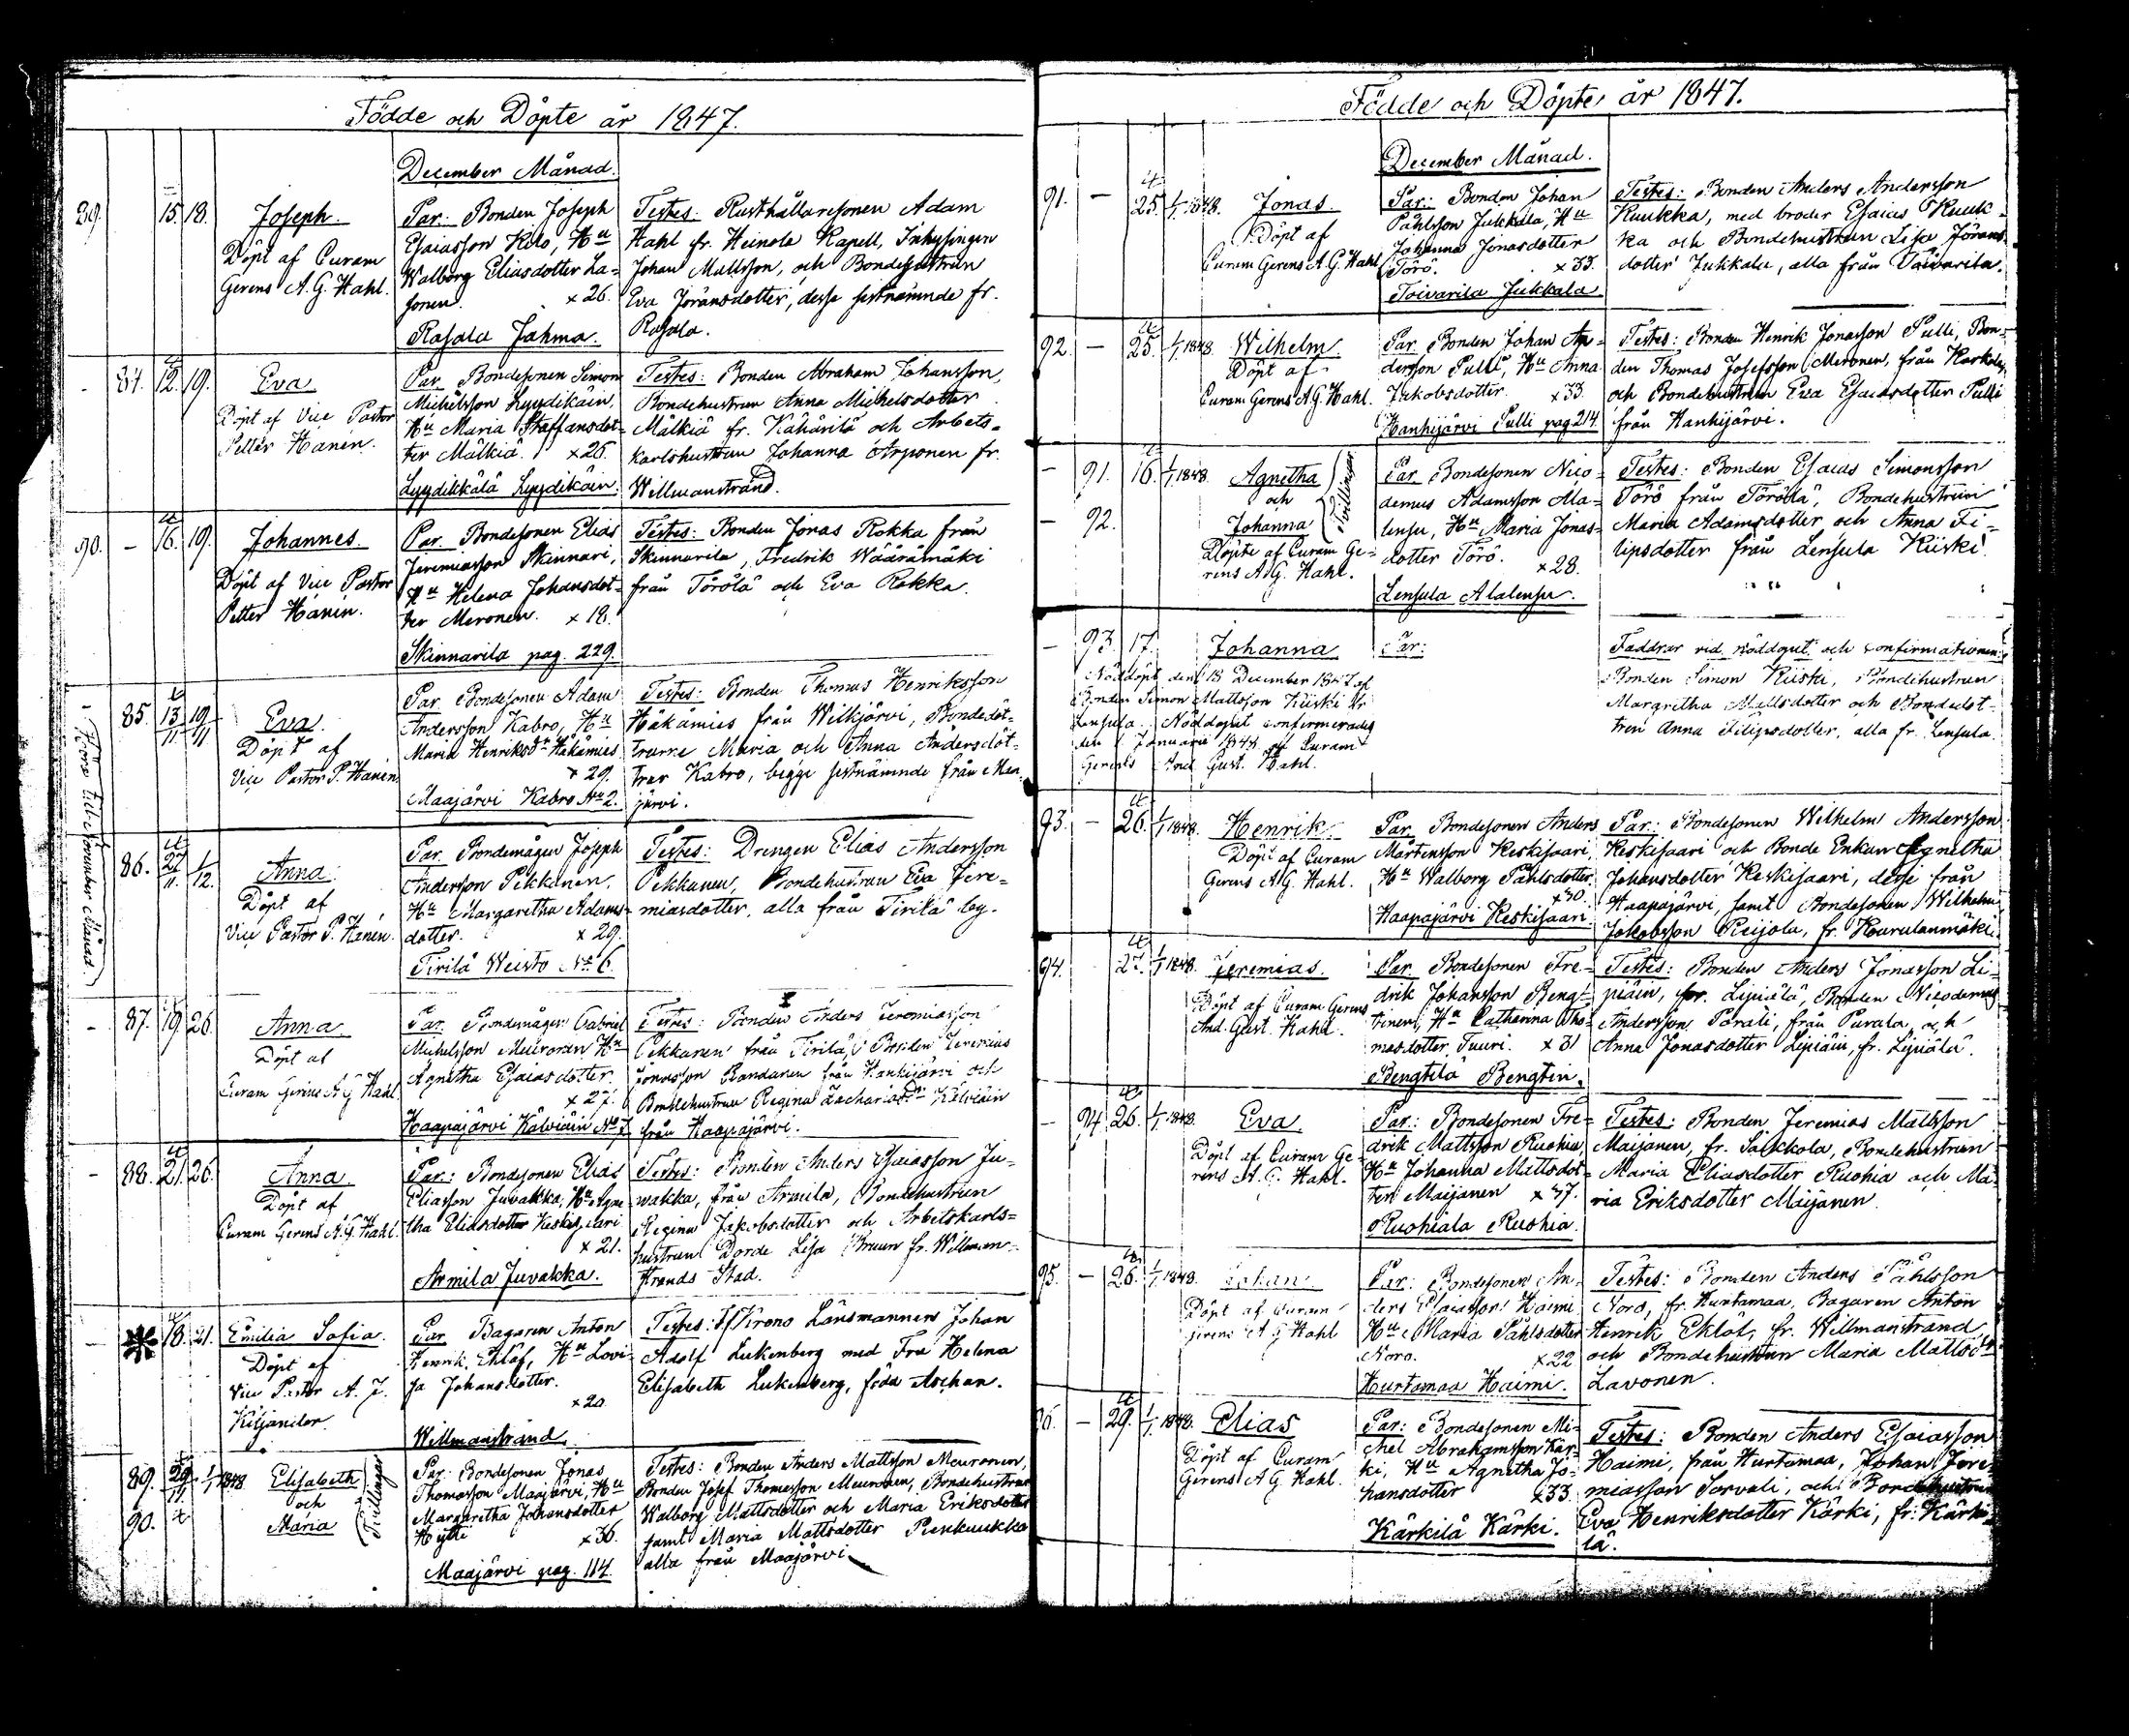 Födde och Döpte år 1847.
December Månad.
89. 15. 18. Joseph.
Döpt af Curam
Gerens A. G. Hahl.
Par: Bonden Joseph
Esaiasson Kilo, Hu
Walborg Eliasdotter La-
sonen. x 26.
Rasala Jahma.
Testes: Rusthållaresonen Adam
Hahl fr. Heinola Kapell, Inhysingen
Johan Mattsson, och Bondehustrun
Eva Jöransdotter, desse sistnämnde fr.
Rasala.
- 84. 12. 19. Eva
Döpt af Vice Pastor
Petter Hanén.
Par. Bondesonen Simon
Michelsson Lyydikäin,
Hu Maria Staffansdot-
ter Mälkiä. x 26.
Lyydikkälä Lyydikäin.
Testes: Bonden Abraham Johansson,
Bondehustrun Anna Michelsdotter
Mälkiä fr. Kähärilä och Arbets-
karlshustrun Johanna Arponen fr.
Willmanstrand.
90. - 16. 19. Johannes.
Döpt af Vice Pastor
Petter Hanén.
Par. Bondesonen Elias
Jeremiasson Skinnari,
Hu Helena Johansdot-
ter Meronen. x 18.
Skinnarila pag. 229.
Testes: Bonden Jonas Rokka från
Skinnarila, Fredrik Wäärämäki
från Törölä och Eva Rokka.
Höra till November Månad.
85. 13/11 19/11 Eva
Döpt af
Vice Pastor P. Hanén
Par. Bondesonen Adam
Andersson Kabro, Hu
Maria Henriksdr Häkämies
x 29.
Maajärvi Kabro No 2.
Testes: Bonden Thomas Henriksson
Häkämies från Wilkjärvi, Bondedöt-
trarne Maria och Anna Andersdöt-
trar Kabro, begge sistnämnde från Maa-
järvi.
86. 27/11. 1/12. Anna
Döpt af
Vice Pastor P. Hanén.
Par. Bondemågen Joseph
Andersson Pekkanen.
Hu Margaretha Adams-
dotter. x 29.
Tirilä Weisto No 6.
Testes: Drengen Elias Andersson
Pekkanen, Bondehustrun Eva Jere-
miasdotter, alla från Tirilä by.
- 87. 19. 26. Anna
Döpt af
Curam Gerens A G Hahl
Par. Bondemågen Gabriel
Michelsson Meuronen Hu
Agnetha Esaiasdotter.
x 27.
Haapajärvi Kälviäin No 7
Testes: Bonden Anders Jeremiasson
Pekkanen från Tirilä, Bonden Jeremias
Jonasson Randanen från Hanhijärvi och
Bondehustrun Regina Zachariædr Kälviäin
från Haapajärvi.
- 88. 21. 26. Anna.
Döpt af
Curam Gerens A. G. Hahl.
Par.: Bondesonen Elias
Eliasson Juvakka, Hu Agne
tha Eliasdotter Keskisaari
x 21.
Armila Juvakka.
Testes: Bonden Anders Esaiasson Ju-
wakka, från Armila, Bondehustrun
Regina Jakobsdotter och Arbetskarls-
hustrun Dorde Lisa Bruun fr. Willman-
strands Stad.
- 18. 21. Emilia Sofia.
Döpt af
Vice Pastor A. J.
Kiljander
Par. Bagaren Anton
Henrik Eklöf, Hu Lovi-
sa Johansdotter.
x 20.
Willmanstrand.
Testes: Krono Länsmannen Johan
Adolf Lukenberg med Fru Helena
Elisabeth Lukenberg, född Aschan.
89. 29/11. 1/1 1848 Elisabeth
och
90. Maria
Tvillingar
Par: Bondesonen Jonas
Thomasson Maajärvi, Hu
Margaretha Johansdotter
Hytti x 36.
Maajärvi pag. 114.
Testes: Bonden Anders Mattsson Meuronen,
Bonden Josef Thomasson Meuronen, Bondehustrun
Walborg Mattsdotter och Maria Eriksdotter
samt Maria Mattsdotter Pienkuukka
alla från Maajärvi
Födde och Döpte år 1847.
December Månad.
91. - 25. 1/1 1848. Jonas.
Döpt af
Curam Gerens A. G. Hahl
Par: Bonden Johan
Påhlsson Jukkala, Hu
Johanna Jonasdotter
Törö. x 33.
Toivarila Jukkala
Testes: Bonden Anders Andersson
Kuukka, med broder Esaias Kuuk-
ka och Bondehustrun Lisa Jörans-
dotter Jukkala, alla från Toivarila.
92. - 25. 1/1 1848 Wilhelm
Döpt af
Curam Gerens A G. Hahl.
Par. Bonden Johan An-
dersson Pulli, Hu Anna
Jakobsdotter. x 33.
Hanhijärvi Pulli pag 214.
Testes: Bonden Henrik Jonasson Pulli, Bon-
den Thomas Josefsson Meronen, från Karkola,
och Bondehustrun Eva Esaiasdotter Pulli
från Hanhijärvi.
- 91. 16. 1/1 1848 Agnetha
och
- 92. Johanna
Tvillingar
Döpte af Curam Ge-
rens A. G. Hahl.
Par. Bondesonen Nico-
demus Adamsson Ala-
lensu, Hu Maria Jonas-
dotter Törö. x 28.
Lensula Alalensu.
Testes: Bonden Esaias Simonsson
Törö från Törölä, Bondehustrun
Maria Adamsdotter och Anna Fi-
lipsdotter från Lensula Kiiski.
- 93. 17. Johanna
Nöddöpt den 18 December 1847 af
Bonden Simon Mattsson Kiiski fr
Lensula. Nöddopet confirmerades
den 1 Januarii 1848 af Curam
Gerens And. Gust. Hahl.
Par:
Faddrar vid nöddopet och confirmationen:
Bonden Simon Kiiski, Bondehustrun
Margretha Mattsdotter och Bondedot-
tren Anna Filipsdotter, alla fr. Lensula.
93. - 26. 1/1 1848. Henrik
Döpt af Curam
Gerens A G. Hahl.
Par. Bondesonen Anders
Mårtensson Keskisaari,
Hu Walborg Påhlsdotter
x 30.
Haapajärvi Keskisaari.
Par.: Bondesonen Wilhelm Andersson
Keskisaari och Bonde Enkan Agnetha
Johansdotter Keskisaari, desse från
Haapajärvi, samt Bondesonen Wilhelm
Jakobsson Reijola, fr. Hourulanmäki.
94. 27. 1/1 1848. Jeremias.
Döpt af Curam Gerens
And. Gust. Hahl.
Par. Bondesonen Fre-
drik Johansson Beng-
tinen, Hu Catharina Tho-
masdotter Tuuri. x 31
Bengtilä Bengtin.
Testes: Bonden Anders Jonasson Li-
piäin, fr. Lipiälä, Bonden Nicodemus
Andersson Parali, från Purala, och
Anna Jonasdotter Lipiäin, fr. Lipiälä.
- 94 26. 1/1 1848. Eva
Döpt af Curam Ge-
rens A. G. Hahl.
Par.: Bondesonen Fre-
drik Mattsson Ruohia,
Hu Johanna Mattsdot-
ter Maijanen x 37.
Ruohiala Ruohia.
Testes: Bonden Jeremias Mattsson
Maijanen, fr. Saikkola, Bondehustrun
Maria Eliasdotter Ruohia och Ma-
ria Eriksdotter Maijanen.
95. - 26. 1/1 1848. Johan
Döpt af Curam
gerens A G Hahl
Par.: Bondesonen An-
ders Esaiasson Haimi
Hu Maria Påhlsdotter
Noro. x 22
Hurtamaa Haimi.
Testes: Bonden Anders Påhlsson
Noro, fr. Hurtamaa, Bagaren Anton
Henrik Eklöf, fr. Willmanstrand
och Bondehustrun Maria Mattsdr
Lavonen.
96. - 29. 1/1 1848. Elias
Döpt af Curam
Gerens A G Hahl.
Par: Bondesonen Mi-
chel Abrahamsson Kär-
ki, Hu Agnetha Jo-
hansdotter x 33.
Kärkilä Kärki.
Testes: Bonden Anders Esaiasson
Haimi, från Hurtamaa, Johan Jere-
miasson Sorvali, och Bondehustrun
Eva Henriksdotter Kärki, fr. Kärki-
lä.